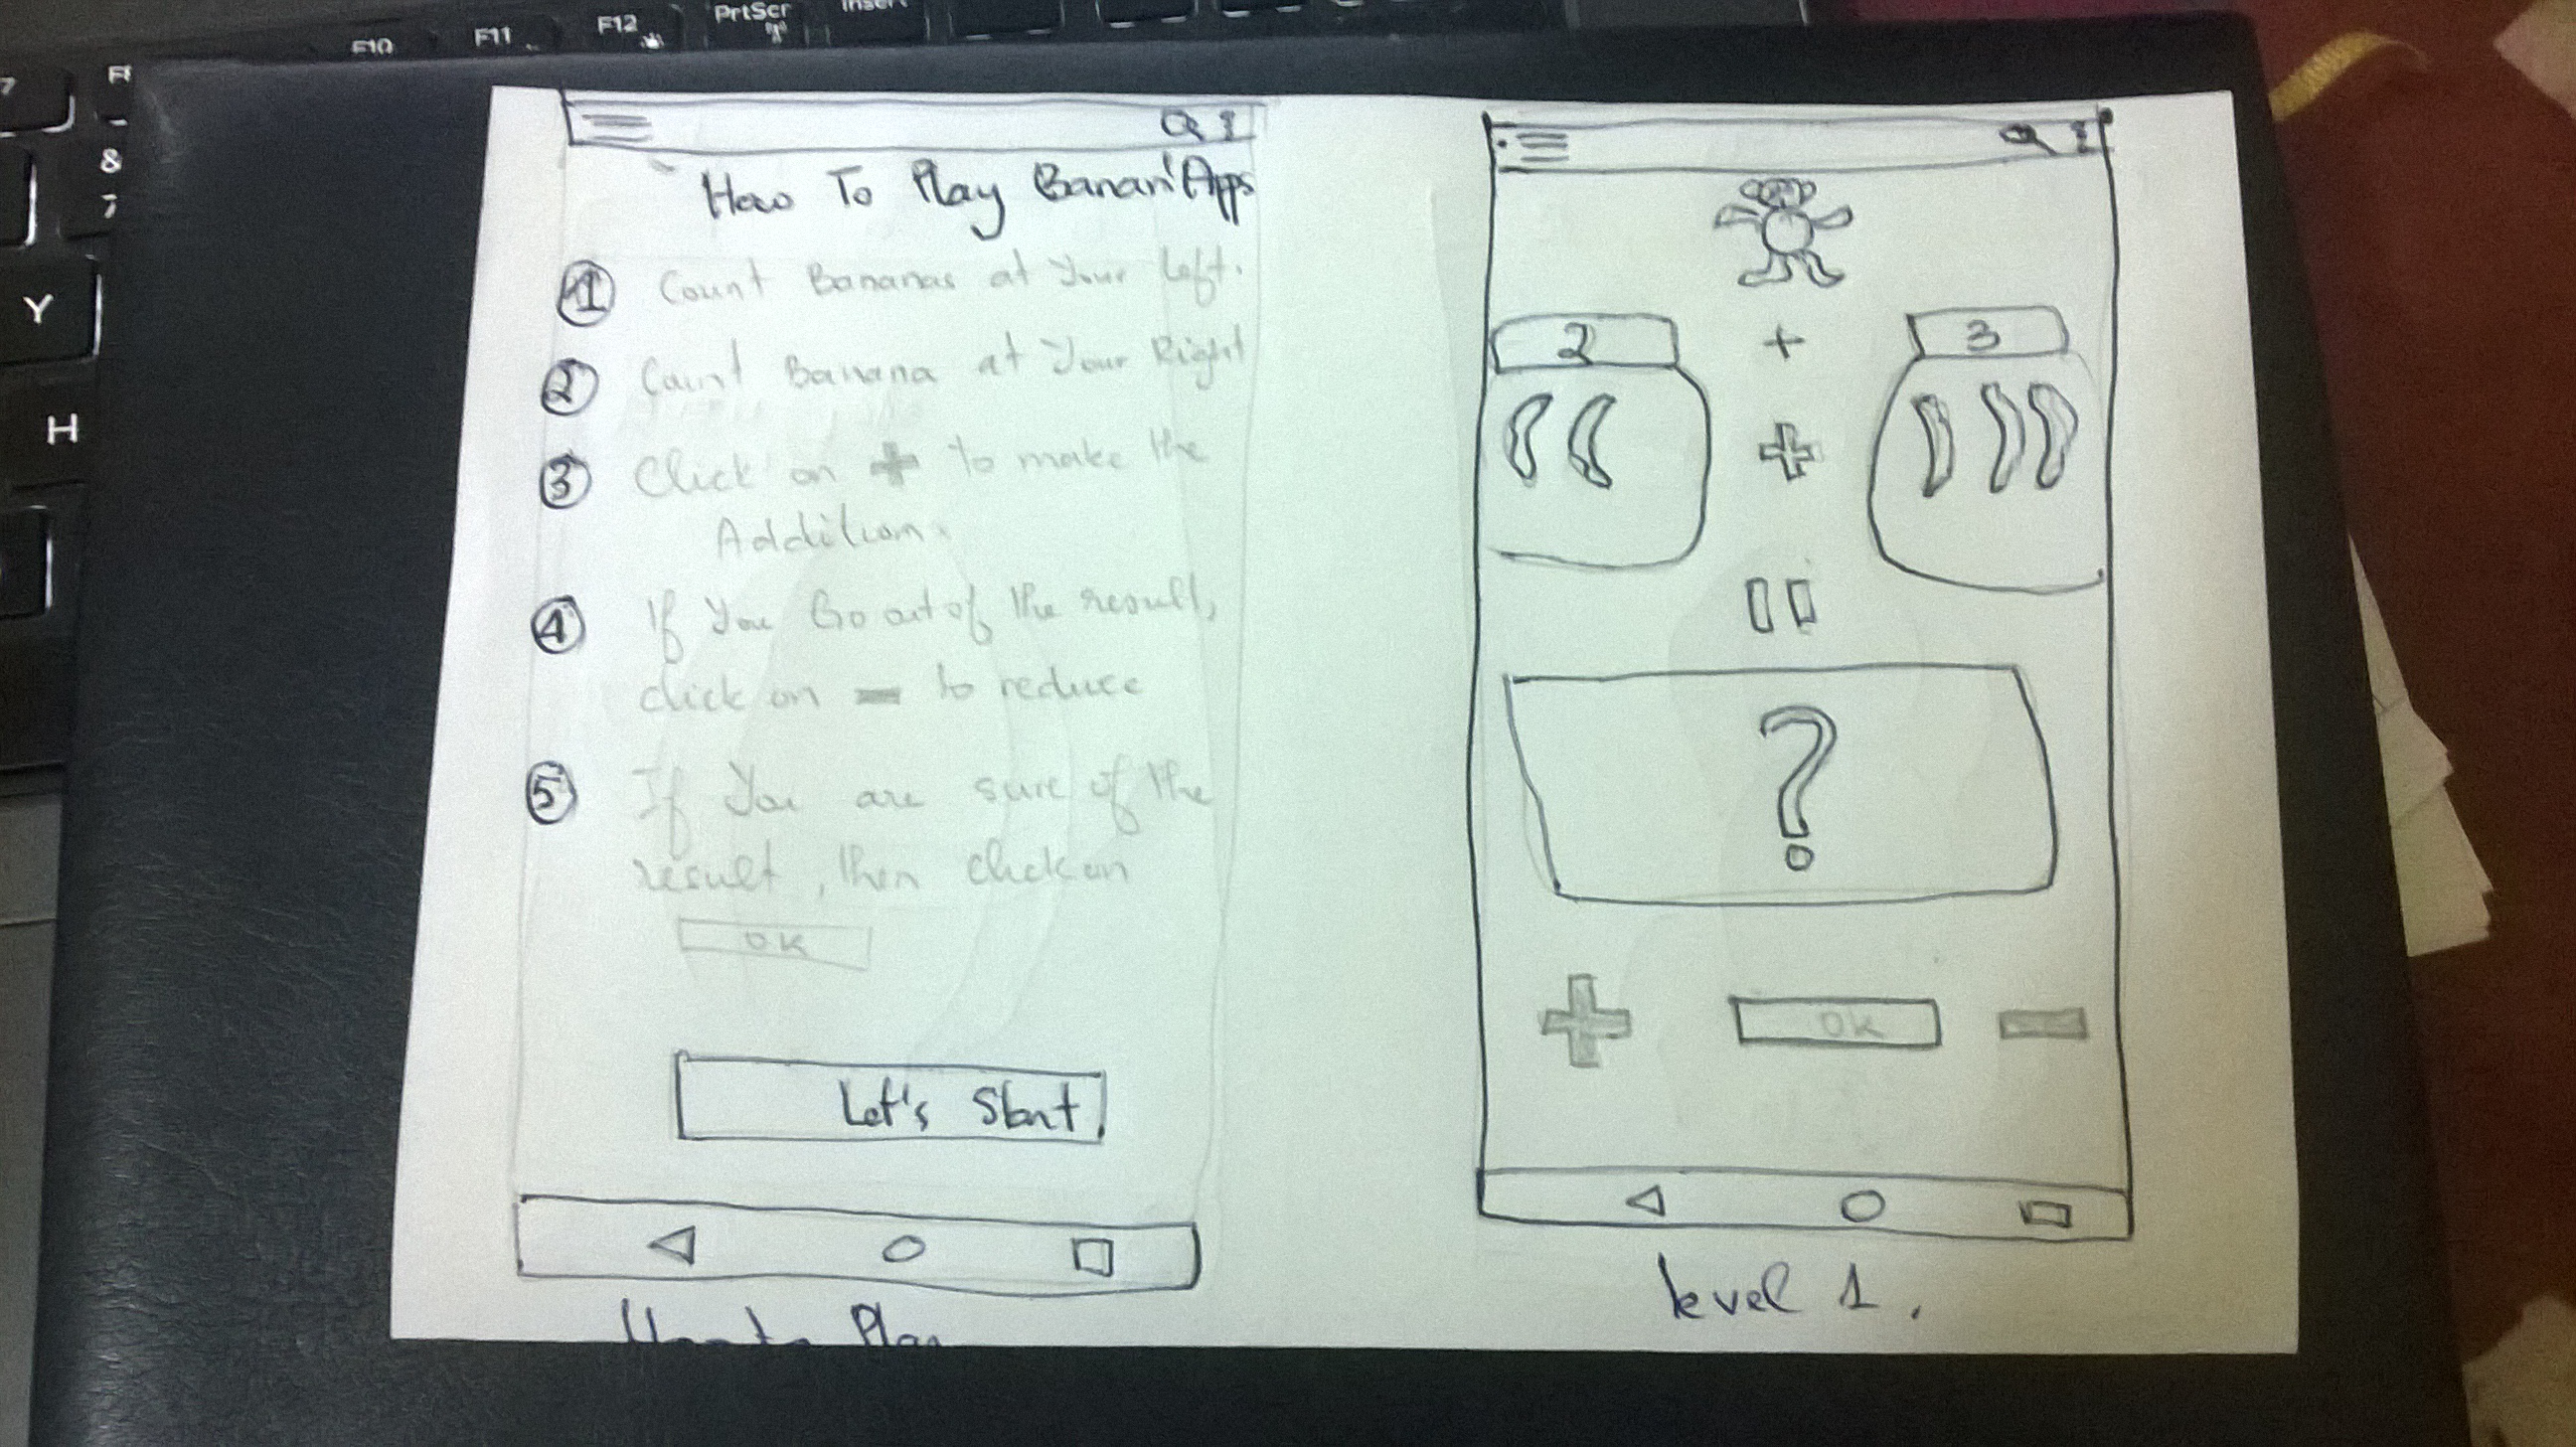 F10
F11
F12
PrtScr
Insert
7
&
7
Y
H
How To Play Banan'Apps
1 Count Bananas at Your Left.
2 Count Banana at Your Right
3 Click on + to make the
Addition.
4 If You Go out of the result,
click on - to reduce
5 If You are sure of the
result, then click on
OK
Let's Start
How to Play
2 + 3
+
?
+ OK -
level 1.